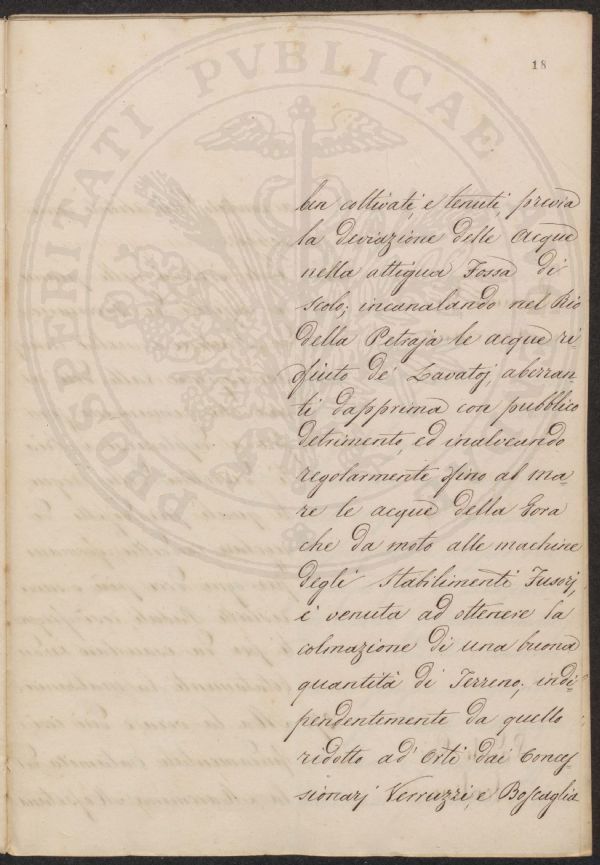 18
ben coltivati, e tenuti, previa
la deviazione delle Acque
nella attigua Fossa di
scolo; incanalando nel Rio
della Petraja le acque ri-
fiuto de' Lavatoj, aberran-
ti dapprima con pubblico
detrimento, ed inalveando
regolarmente fino al ma-
re le acque della Gora
che da moto alle machine
degli Stabilimenti Fusorj,
è venuta ad ottenere la
colmazione di una buona
quantità di Terreno; indi-
pendentemente da quello
ridotto ad Orti dai Conces-
sionarj Verruzzi, e Boscaglia
PROSPERITATI PVBLICAE